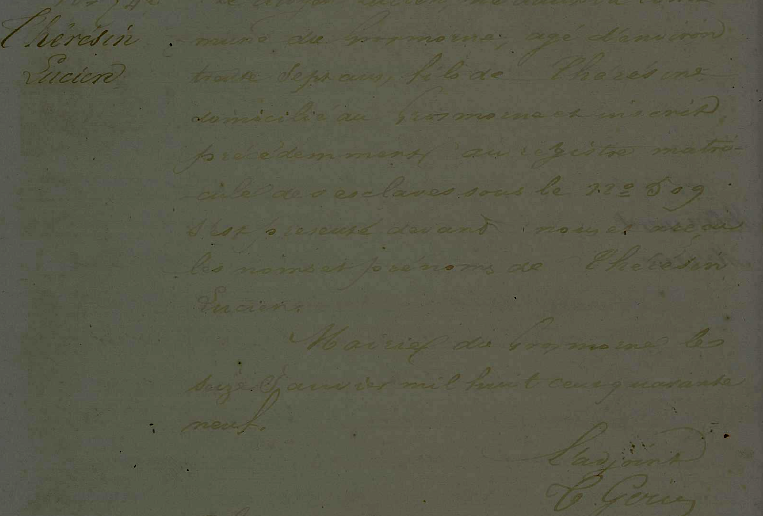 Le citoyen Lucien, né
Thérésin mune du Grosmorne, agé d'environ
Lucien trente sept ans, fils de Thérésine
domicilié au Grosmorne et inscrit,
précédemment au registre matri-
cule des esclaves sous le No 509
s'est présenté devant nous et reçu
les noms et prénoms de Thérésin
Lucien.
Mairie du Grosmorne, les
seize Janvier mil huit cent quarante
neuf.
L'adjoint